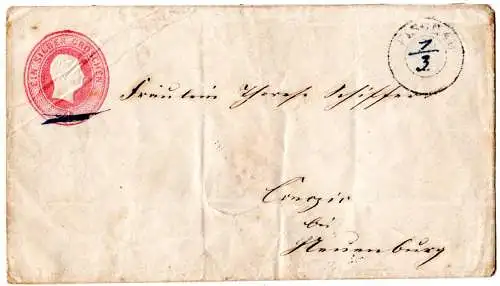 EIN SILBER GROSCHEN
7/3
Fräulein Therese Schiffer
bei
Neuenburg